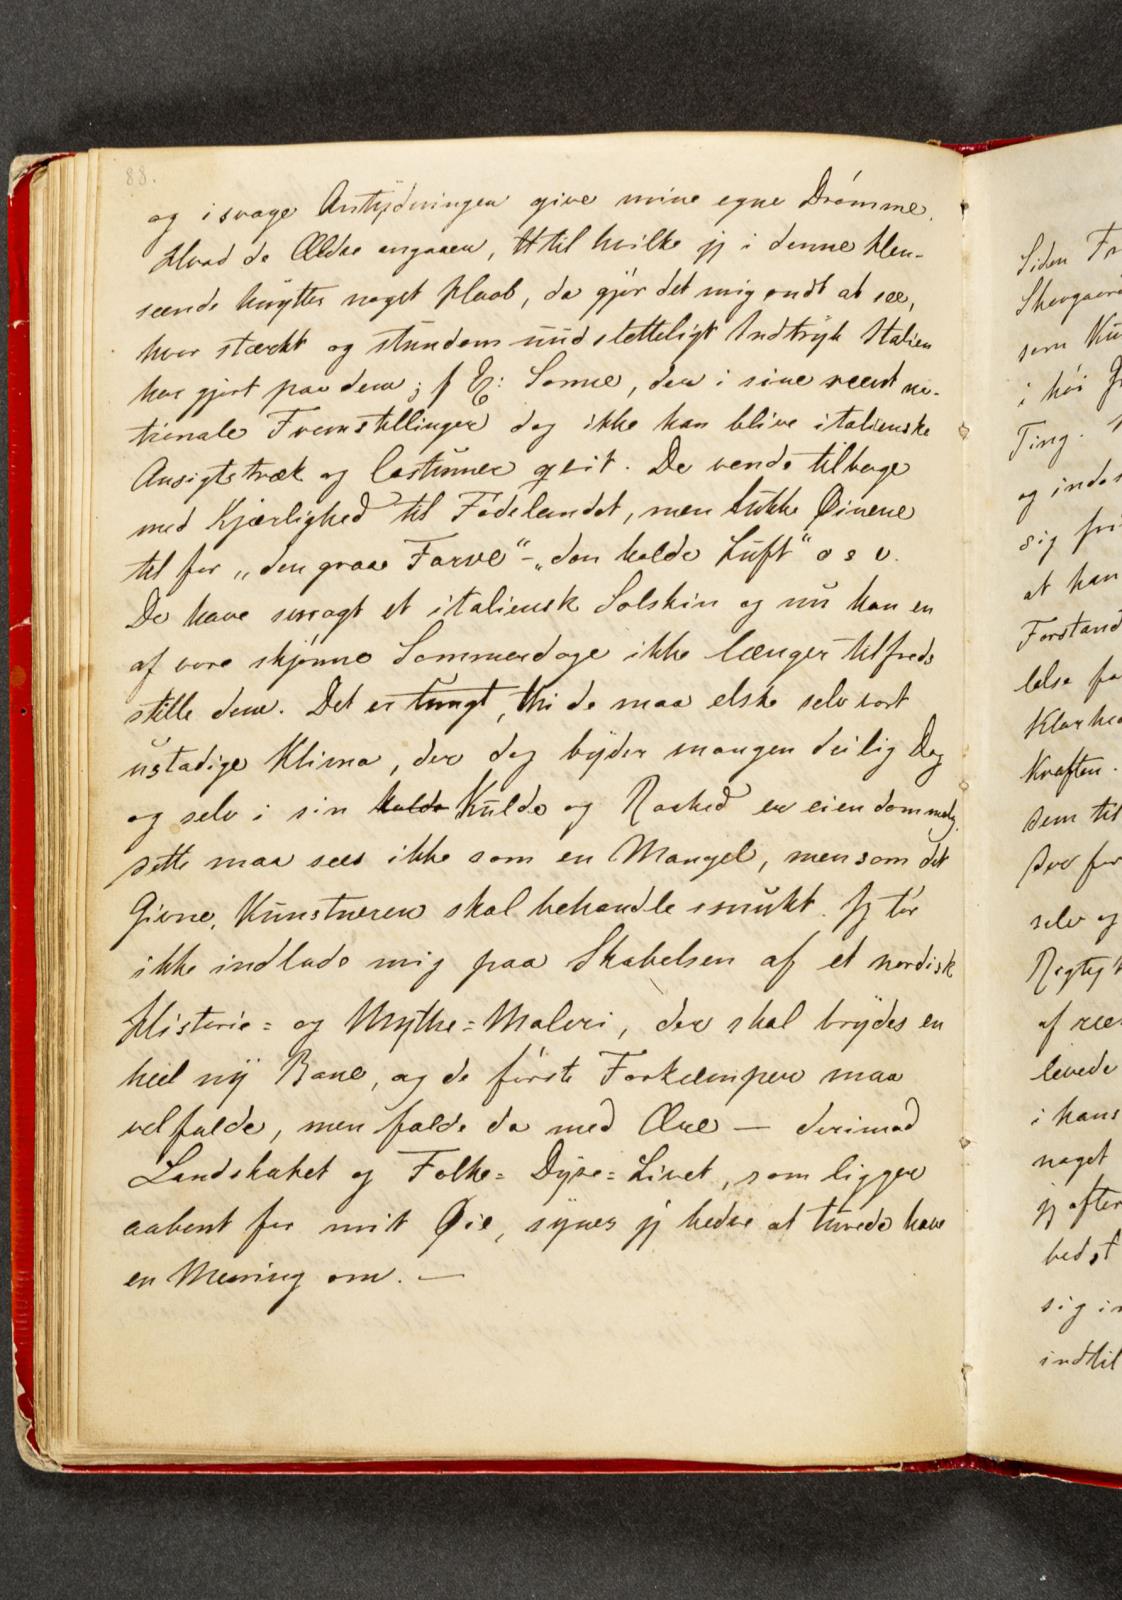 88.
og i svage Antydninger give mine egne Drömme.
Hvad de Ældre angaaer, til hvilke jeg i denne Hen-
seende knytter noget Haab, da gjör det mig ondt at see,
hvor stærkt og stundom uudsletteligt Indtryk Italien
har gjort paa dem; f Ex: Sonne, der i sine reent na-
tionale Fremstillinger dog ikke kan blive italienske
Ansigtstræk og Costumer qvit. De vende tilbage
med Kjærlighed til Födelandet, men lukke Øinene
til for „den graa Farve“-„den kolde Luft“ o s v.
De have smagt et italiensk Solskin og nu kan en
af vore skjönne Sommerdage ikke længer tilfreds
stille dem. Det er tungt, thi de maa elske selv vort
ustadige Klima, der dog byder mangen deilig Dag
og selv i sin kolde Kulde og Raahed er eiendommelig.
dette maa sees ikke som en Mangel, men som det
Givne, Kunstneren skal behandle smukt. Jeg tör
ikke indlade mig paa Skabelsen af et nordisk
Historie= og Mythe=Maleri, der skal brydes en
heel ny Bane, og de förste Forkæmpere maa
vel falde, men falde da med Ære — derimod
Landskabet og Folke= Dyre=Livet, som ligger
aabent for mit Øie, synes jeg bedre at turde have
en Mening om. —
Siden Fr
Skovgaard
som Ku
i höi G
Ting.
og indes
sig fri
at han
Forstand
lelse fo
Klarhed
Kraften.
dem til
der for
selv og
Rigtig
af
levede
i hans
noget
jeg efter
bedst
sig i
indtil